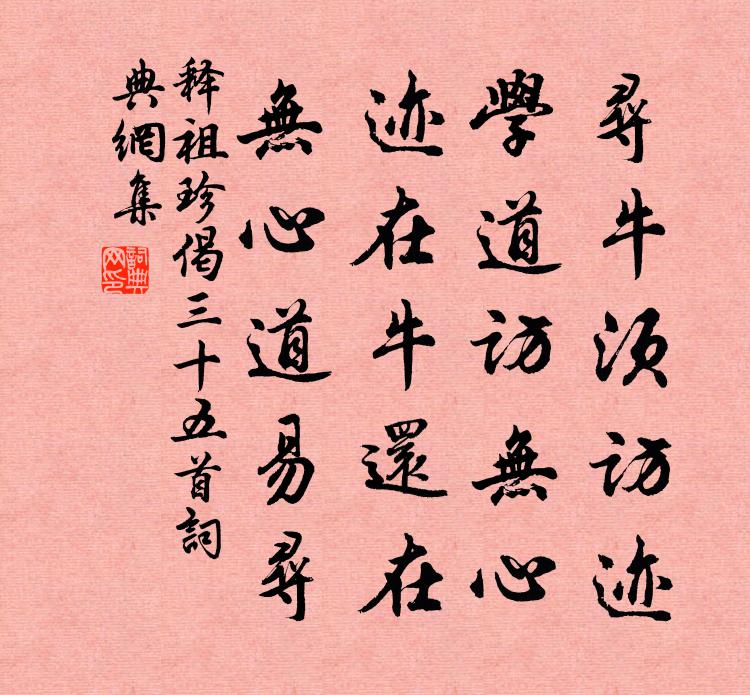 尋牛須訪迹
學道訪無心
迹在牛還在
無心道易尋
释祖珍偈三十五首詞
典網集
詞典網印